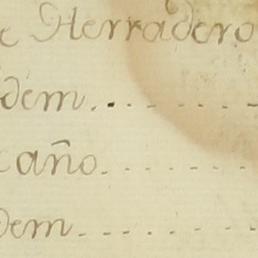 e Herradero
dem. . . . . . .
caño. . . . . . .
dem. . . . . . . .